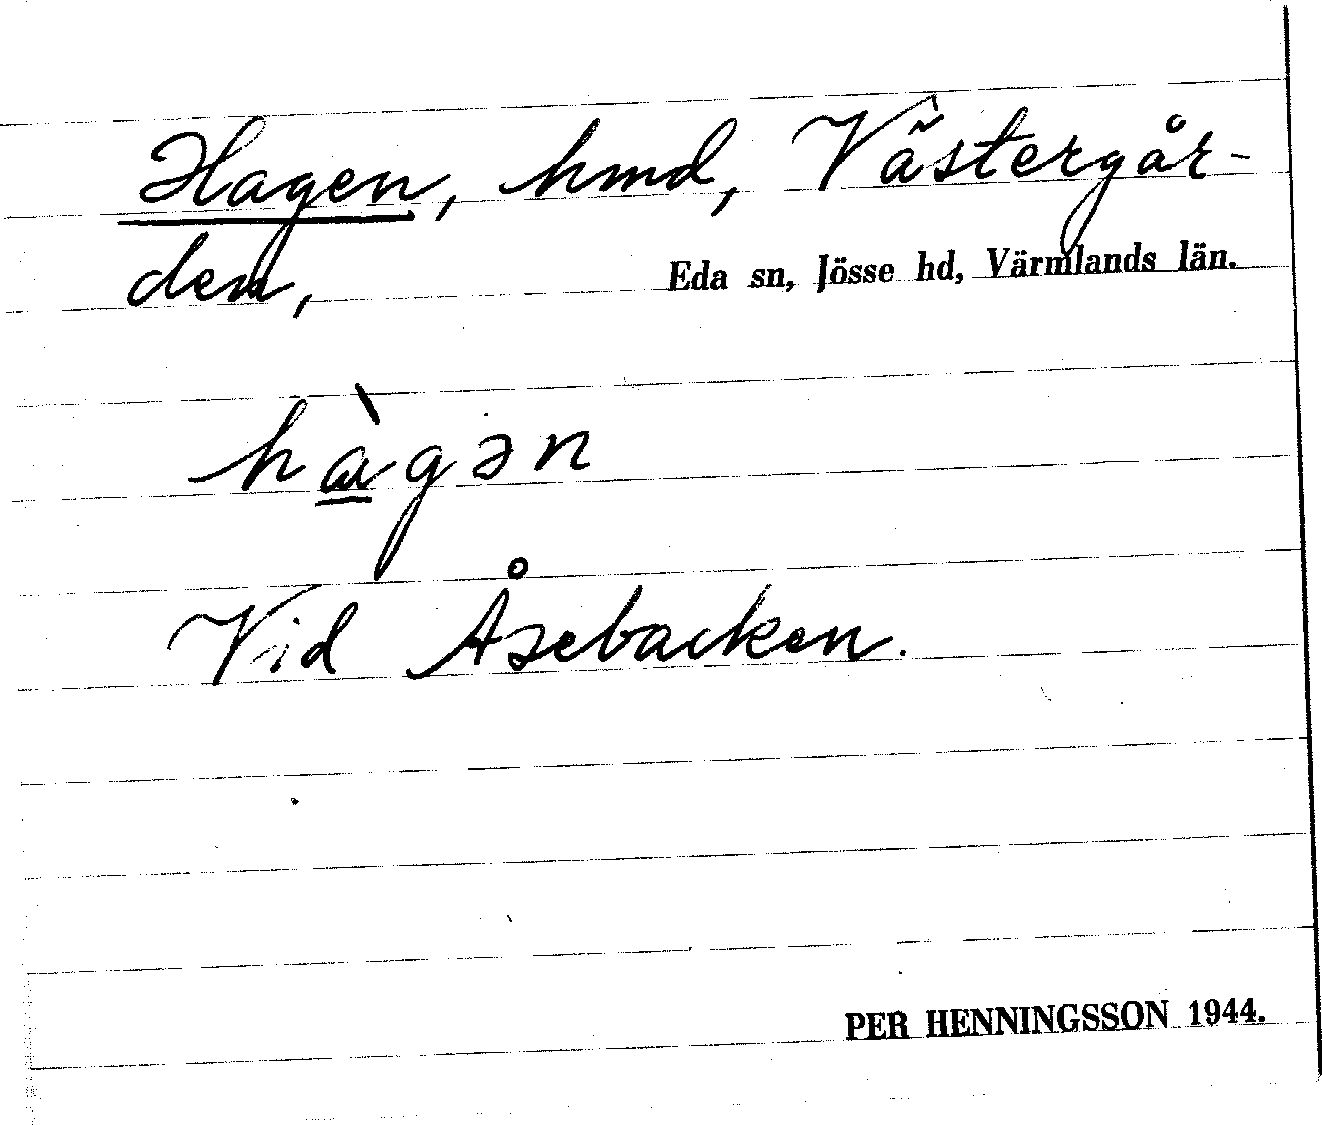 Hagen, hmd, Västergår-
den, Eda sn, Jösse hd, Värmlands län.
hàgən
Vid Åsebacken.
PER HENNINGSSON 1944.